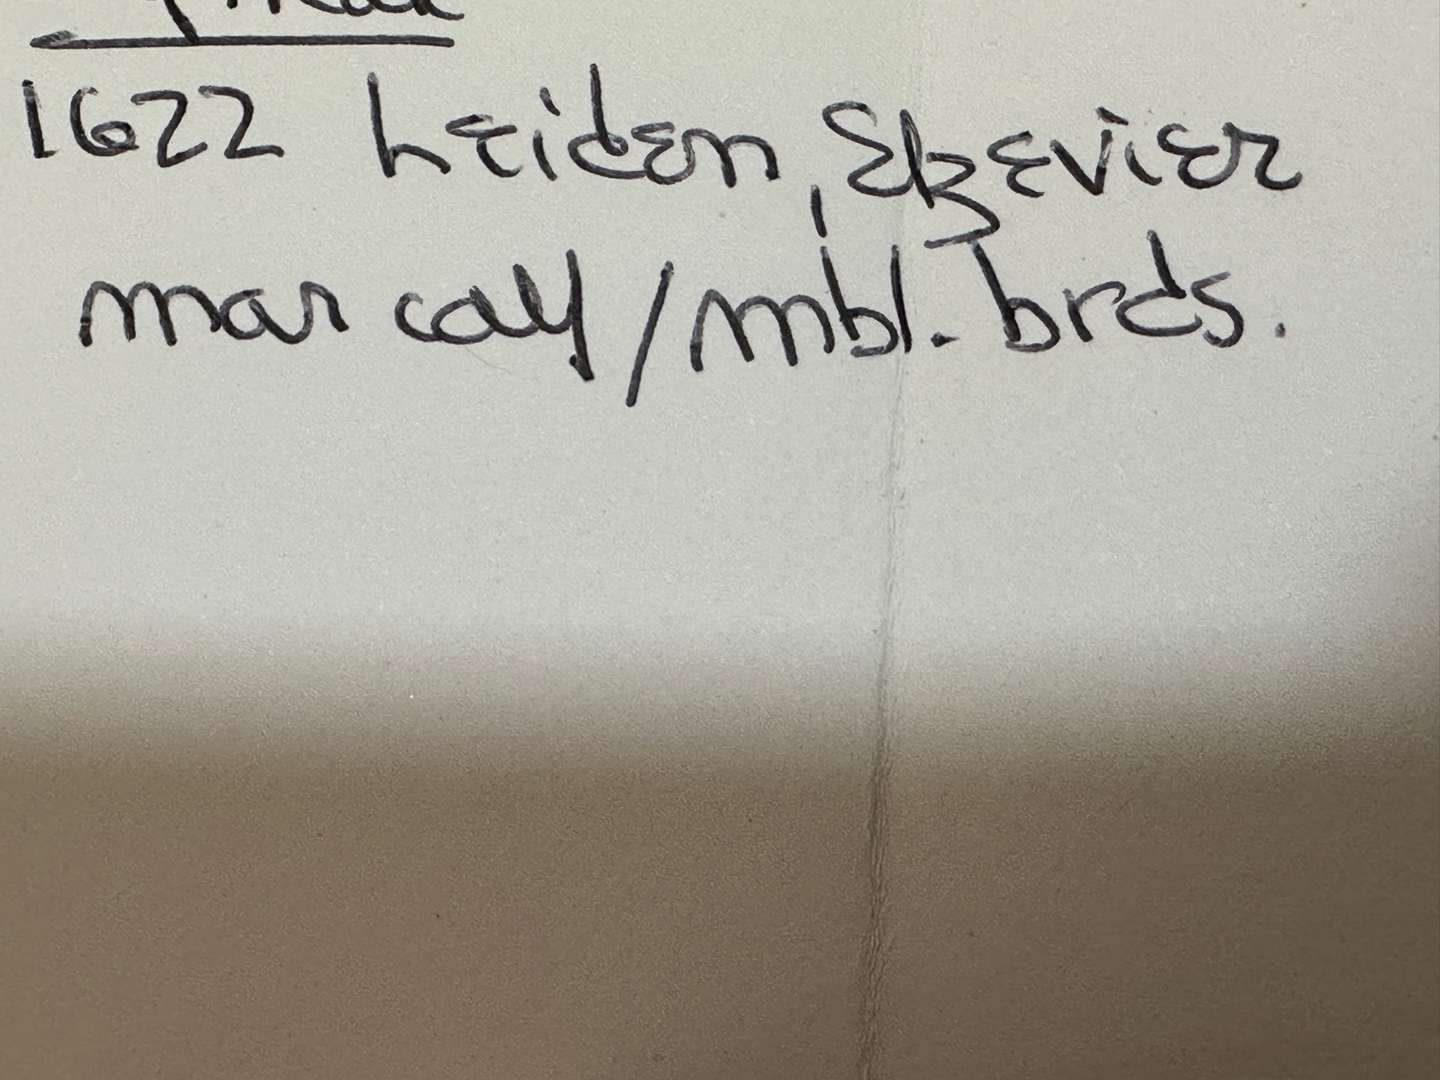 1622 Leiden, Elzevier
mar calf/mbl. brds.